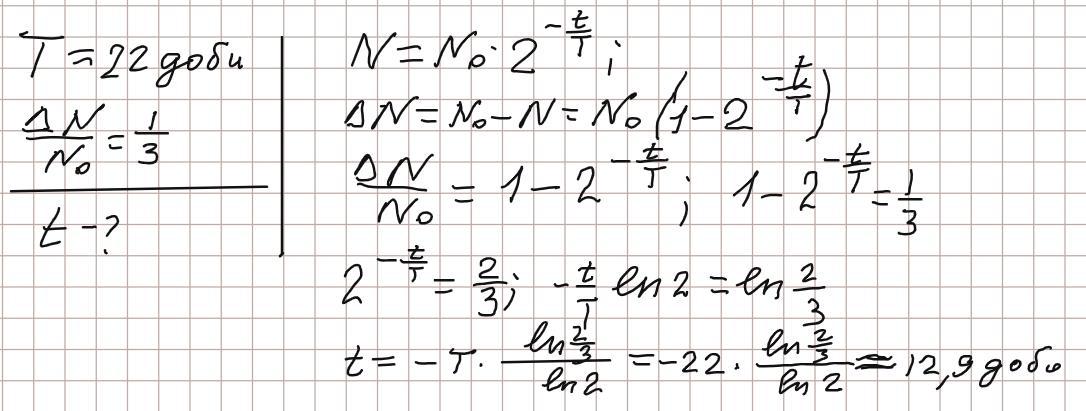 T = 22 доби
ΔN/N₀ = 1/3
t - ?
N = N₀ · 2^(-t/T) ;
ΔN = N₀ - N = N₀ (1 - 2^(-t/T))
ΔN/N₀ = 1 - 2^(-t/T) ; 1 - 2^(-t/T) = 1/3
2^(-t/T) = 2/3 ; -t/T ln 2 = ln 2/3
t = - T · (ln 2/3)/(ln 2) = -22 · (ln 2/3)/(ln 2) = 12,9 доби